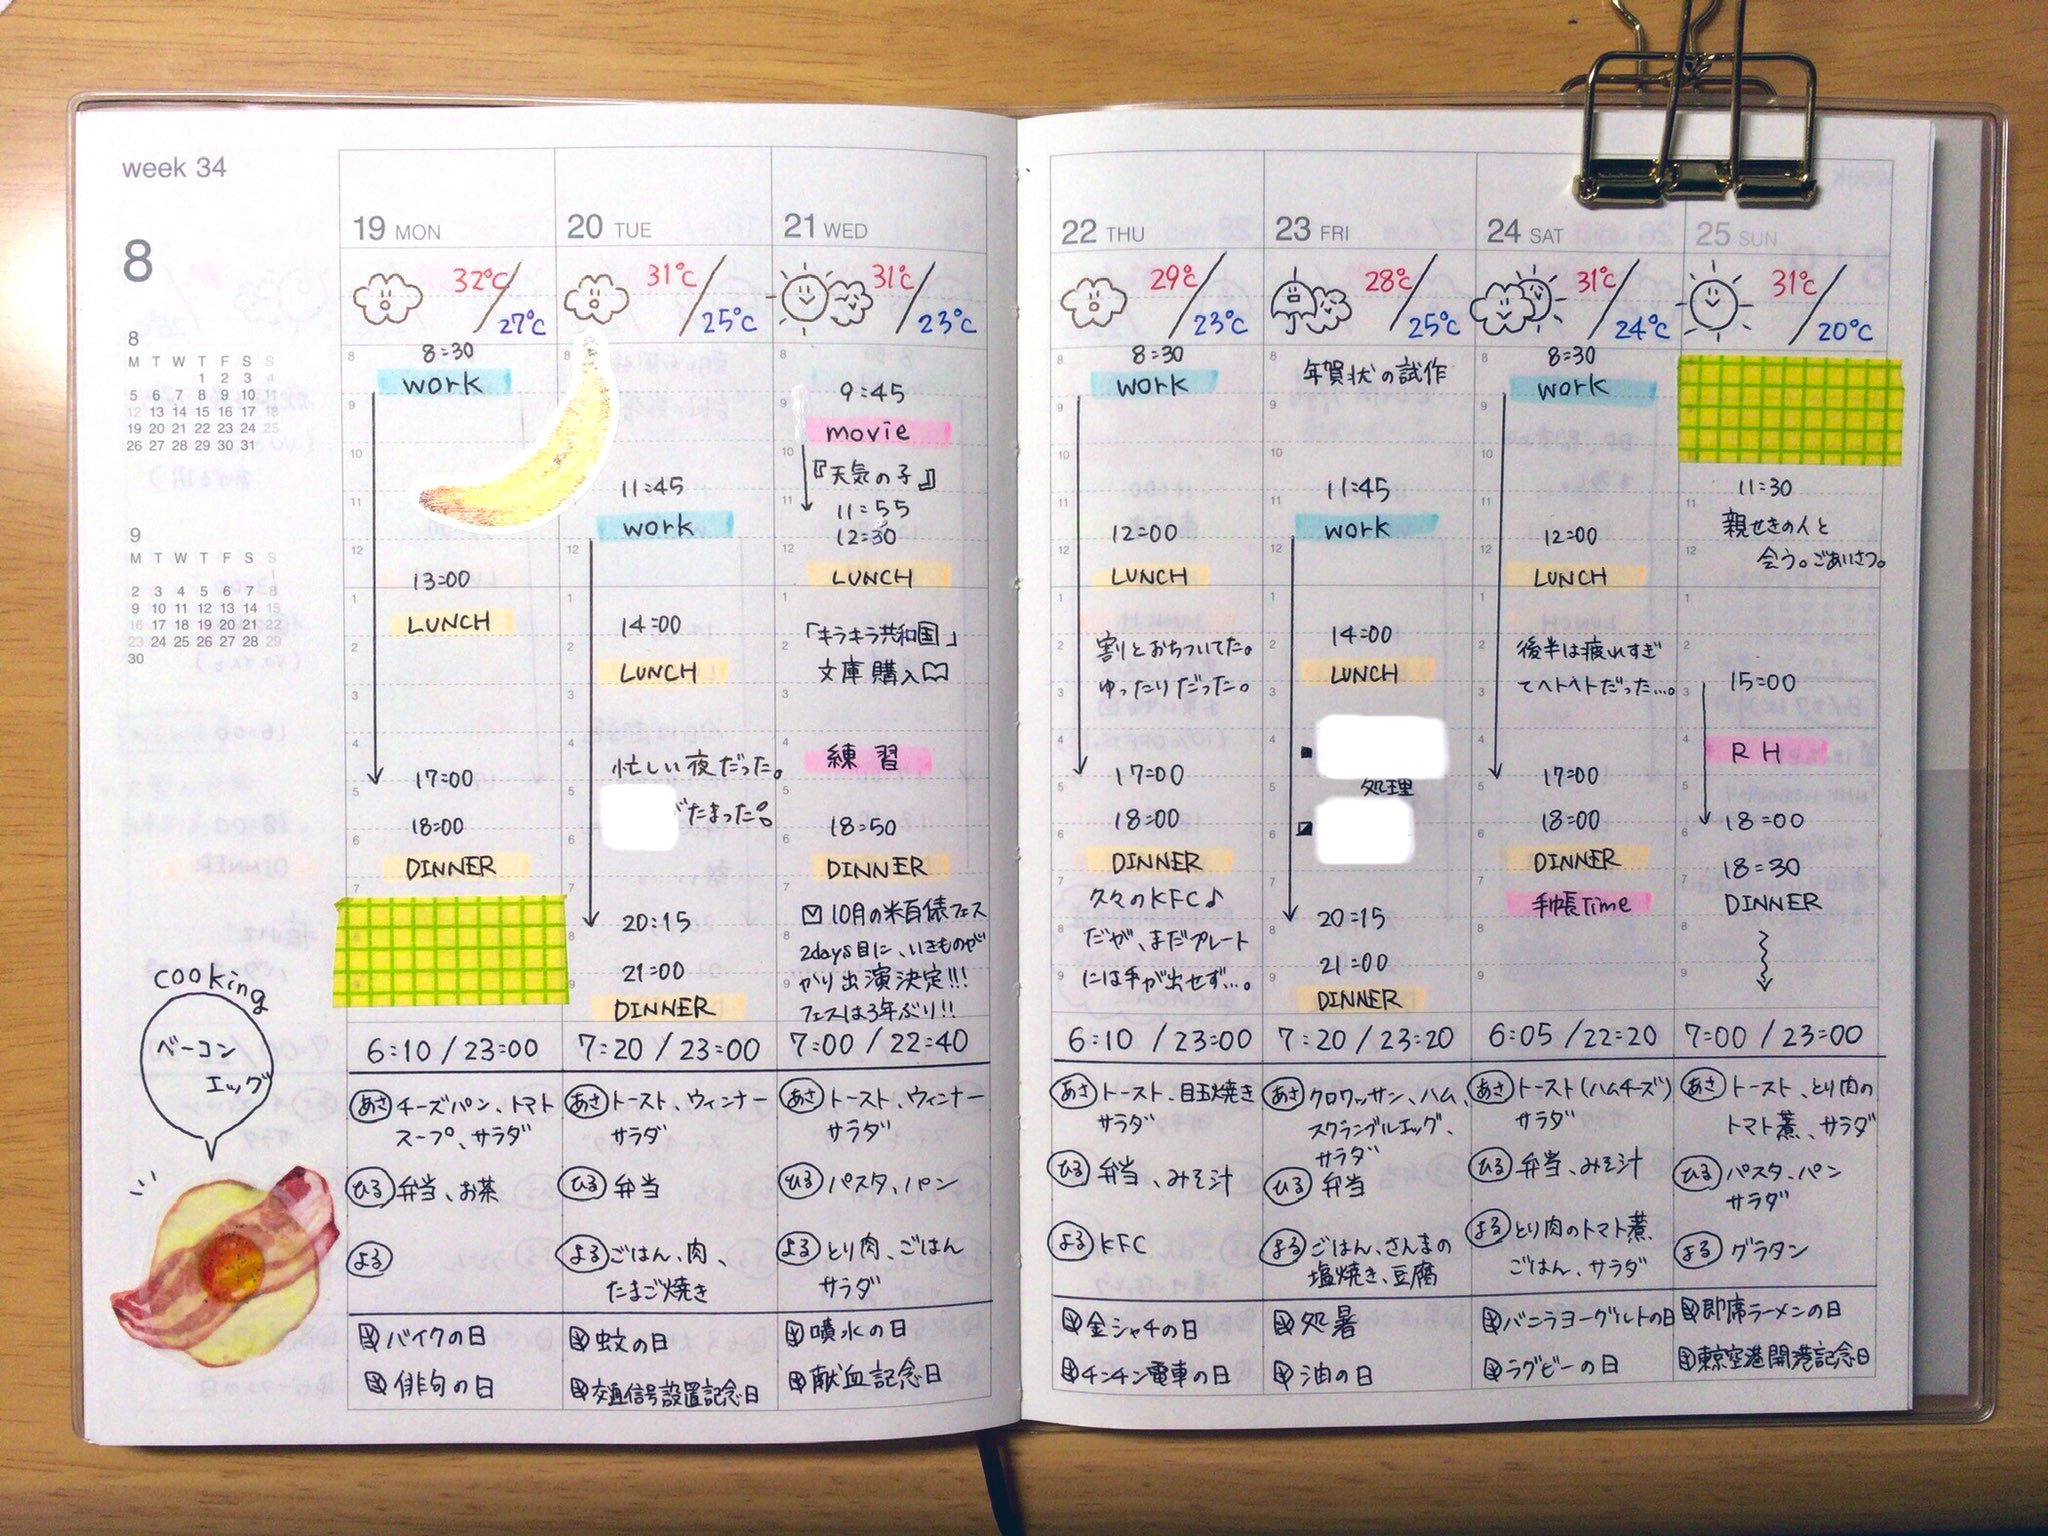 week 34
8
8
M T W T F S S
1 2 3 4
5 6 7 8 9 10 11
12 13 14 15 16 17 18
19 20 21 22 23 24 25
26 27 28 29 30 31
9
M T W T F S S
1
2 3 4 5 6 7 8
9 10 11 12 13 14 15
16 17 18 19 20 21 22
23 24 25 26 27 28 29
30
cooking
ベーコン
エッグ
19 MON
32℃/27℃
8:30
work
13:00
LUNCH
17:00
18:00
DINNER
6:10 / 23:00
あさ チーズパン、トマト
スープ、サラダ
ひる 弁当、お茶
よる
バイクの日
俳句の日
20 TUE
31℃/25℃
11:45
work
14:00
LUNCH
忙しい夜だった。
がたまった!
20:15
21:00
DINNER
7:20 / 23:00
あさ トースト、ウィンナー
サラダ
ひる 弁当
よる ごはん、肉、
たまご焼き
蚊の日
交通信号設置記念日
21 WED
31℃/23℃
9:45
movie
『天気の子』
11:55
12:30
LUNCH
「キラキラ共和国」
文庫購入
練習
18:50
DINNER
10月の米百俵フェス
2days目に、いきものが
かり出演決定!!!
フェスは3年ぶり!!
7:00 / 22:40
あさ トースト、ウィンナー
サラダ
ひる パスタ、パン
よる とり肉、ごはん
サラダ
噴水の日
献血記念日
22 THU
29℃/23℃
8:30
work
12:00
LUNCH
割とおちついてた。
ゆったりだった。
17:00
18:00
DINNER
久々のKFC♪
だが、まだプレート
には手が出せず…。
6:10 / 23:00
あさ トースト、目玉焼き
サラダ
ひる 弁当、みそ汁
よる KFC
金シャチの日
チンチン電車の日
23 FRI
28℃/25℃
年賀状の試作
11:45
work
14:00
LUNCH
処理
20:15
21:00
DINNER
7:20 / 23:20
あさ クロワッサン、ハム、
スクランブルエッグ、
サラダ
ひる 弁当
よる ごはん、さんまの
塩焼き、豆腐
処暑
油の日
24 SAT
31℃/24℃
8:30
work
12:00
LUNCH
後半は疲れすぎ
てヘトヘトだった…。
17:00
18:00
DINNER
手帳Time
6:05 / 22:20
あさ トースト(ハムチーズ)
サラダ
ひる 弁当、みそ汁
よる とり肉のトマト煮、
ごはん、サラダ
バニラヨーグルトの日
ラグビーの日
25 SUN
31℃/20℃
11:30
親せきの人と
会う。ごあいさつ。
15:00
RH
18:00
18:30
DINNER
7:00 / 23:00
あさ トースト、とり肉の
トマト煮、サラダ
ひる パスタ、パン
サラダ
よる グラタン
即席ラーメンの日
東京空港開港記念日